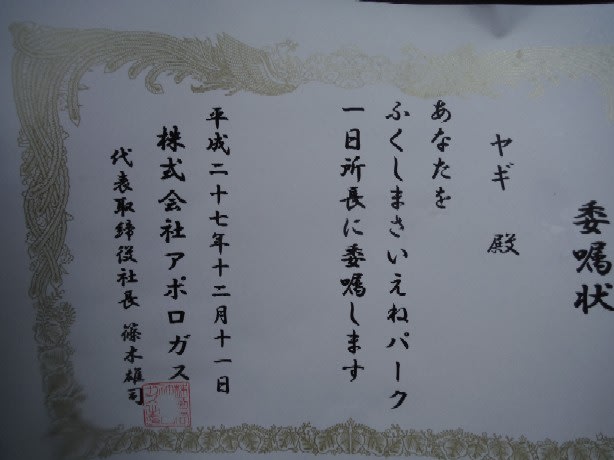 委嘱状
ヤギ 殿
あなたを
ふくしまさいえねパーク
一日所長に委嘱します
平成二十七年十二月十一日
株式会社アポロガス
代表取締役社長 篠木雄司